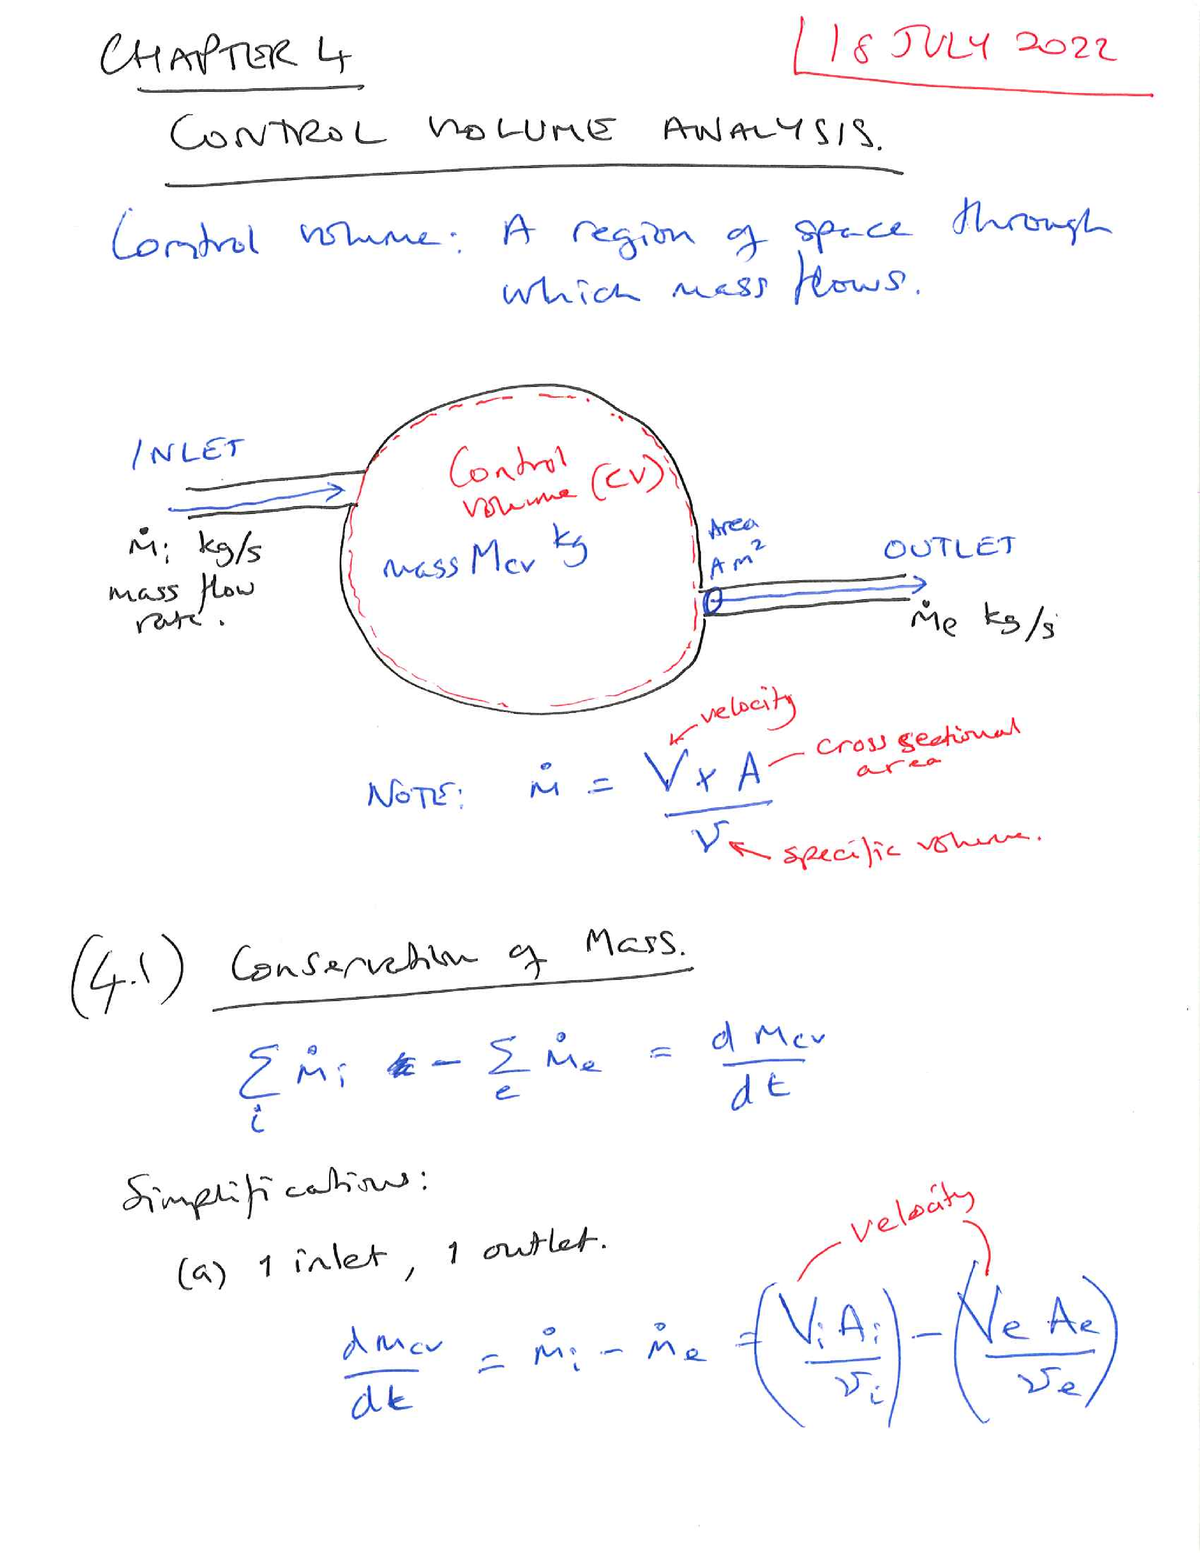 CHAPTER 4
18 JULY 2022
CONTROL VOLUME ANALYSIS.
Control volume: A region of space through
which mass flows.
INLET
ṁi kg/s
mass flow
rate.
Control
volume (CV)
mass Mcv kg
Area
A m²
OUTLET
ṁe kg/s
velocity
NOTE: ṁ = V x A / v
cross sectional
area
specific volume.
(4.1) Conservation of Mass.
Σi ṁi - Σe ṁe = d mcv / dt
Simplifications:
(a) 1 inlet, 1 outlet.
velocity
d mcv / dt = ṁi - ṁe = (Vi Ai / vi) - (Ve Ae / ve)